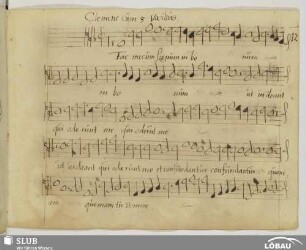 Clemens
Fac mecum signum in bo num
in bo num ut videant
qui oderunt me qui oderunt me
ut videant qui oderunt me et confundantur confundantur quoni
am quoniam tu Domine
SLUB
Wir führen Wissen.
LÖBAU